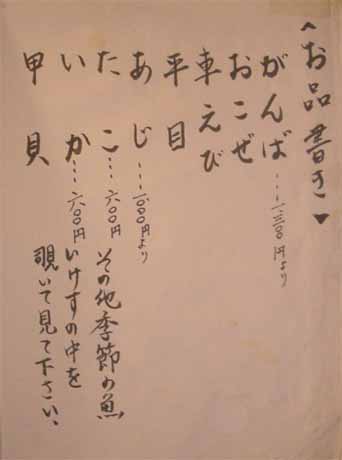 〈お品書き〉
がんば…一三〇〇円より
おこぜ
車えび
平目
あじ…一〇〇〇円より
たこ…六〇〇円
いか…六〇〇円
甲貝
その他季節の魚
いけすの中を
覗いて見て下さい、